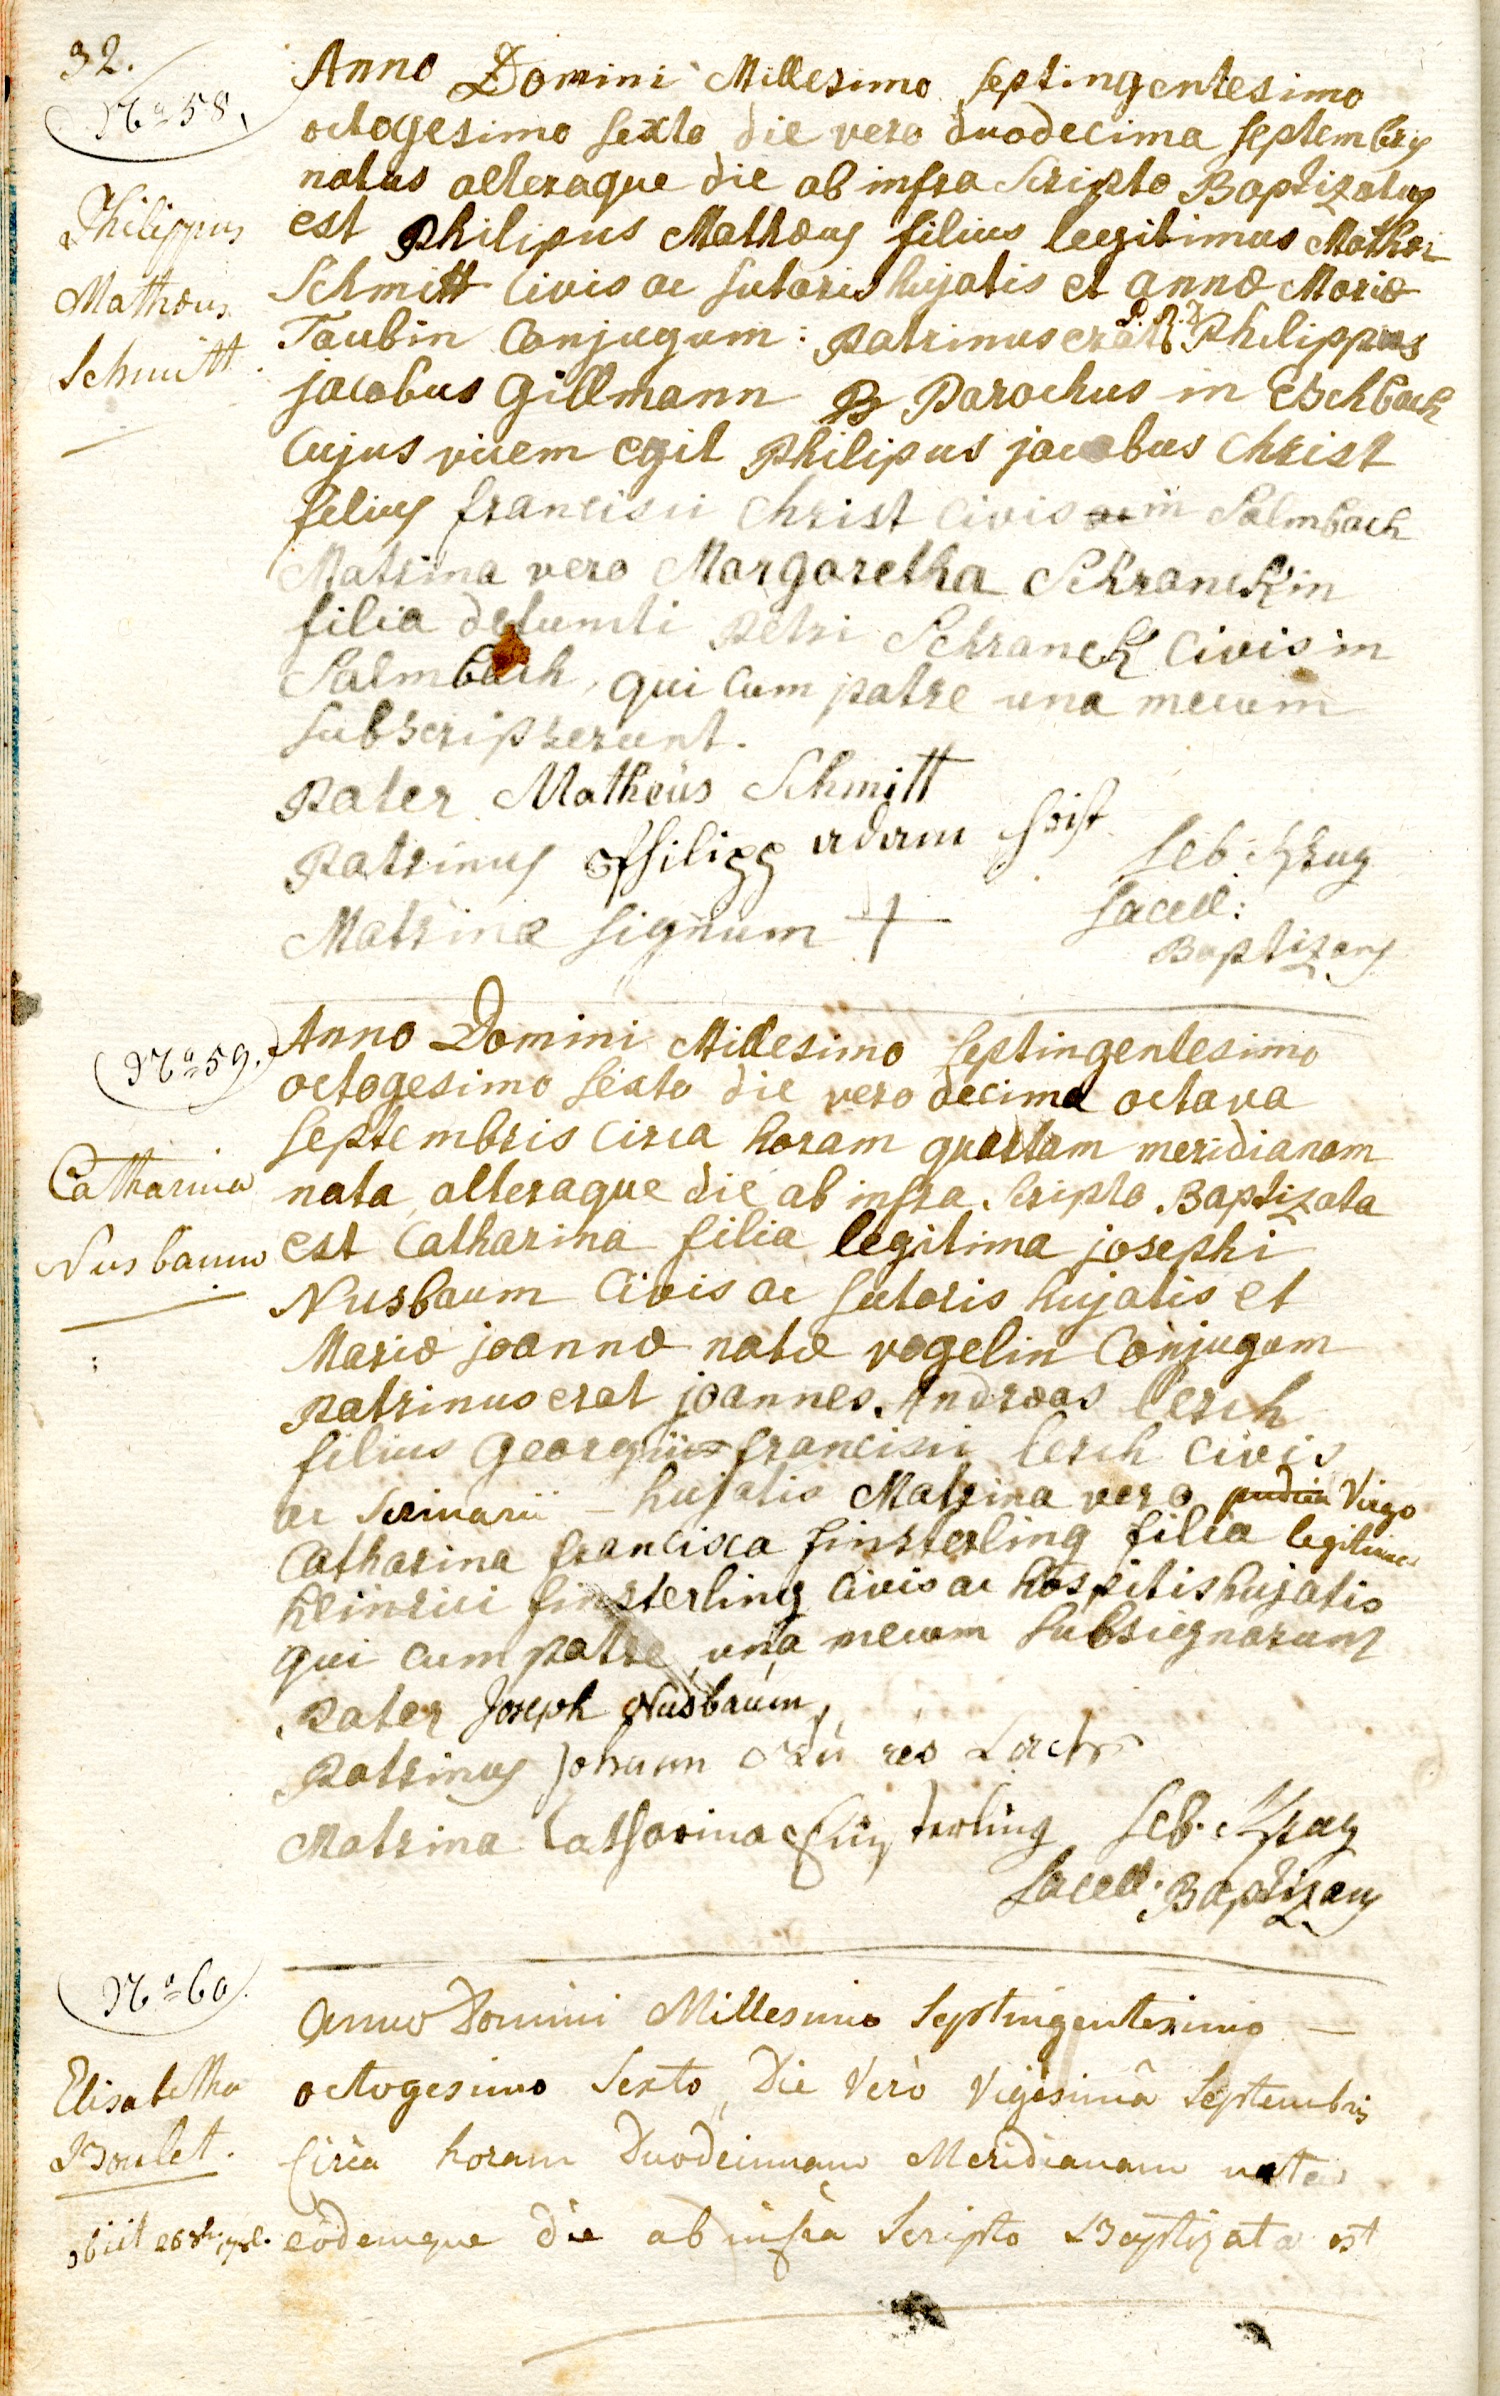 32.
No 58.
Philippus
Mathæus
Schmitt.
Anno Domini Millesimo septingentesimo
octogesimo sexto die vero duodecima septembris
natus alteraque die ab infra scripto Baptizatus
est Philipus Mathæus filius legitimus Mathæi
Schmitt civis ac sutoris hujatis et annæ Mariæ
Taubin Conjugum: patrinus erat P. R. D. Philippus
jacobus Gillmann Parochus in Eschbach
cujus vicem egit Philipus jacobus Christ
filius francisci Christ civis in Salmbach
Matrina vero Margaretha Schranckin
filia defuncti petri Schranck civis in
Salmbach, qui cum patre una mecum
subscripserunt.
Pater Matheüs Schmitt
Patrinus Philipp adam Crist
Matrinæ signum +
Seb: Krug
Sacell:
Baptizans
No 59.
Catharina
Nusbaum
Anno Domini Millesimo septingentesimo
octogesimo sexto die vero decima octava
septembris circa horam quartam meridianam
nata, alteraque die ab infra scripto Baptizata
est Catharina filia legitima josephi
Nusbaum civis ac sutoris hujatis et
Mariæ joannæ natæ vogelin Conjugum
patrinus erat joannes Andræas lerch
filius georgii francisci lerch civis
ac scrinarii - hujatis Matrina vero pudica Virgo
Catharina francisca finsterling filia legitima
heinrici finsterling civis ac hospitis hujatis
qui cum patre una mecum subsignarunt
Pater Joseph Nusbaüm,
Patrinus Johann Andreas Lerch
Matrina Catharina Finsterling
Seb. Krug
Sacell: Baptizans
No 60.
Elisabetha
Boulet.
obiit
Anno Domini Millesimo Septingentesimo -
octogesimo Sexto, Die Verò Vigesimâ Septembris
Circa horam Duodecimam Meridianam nata
eodemque die ab infra Scripto Baptizata est